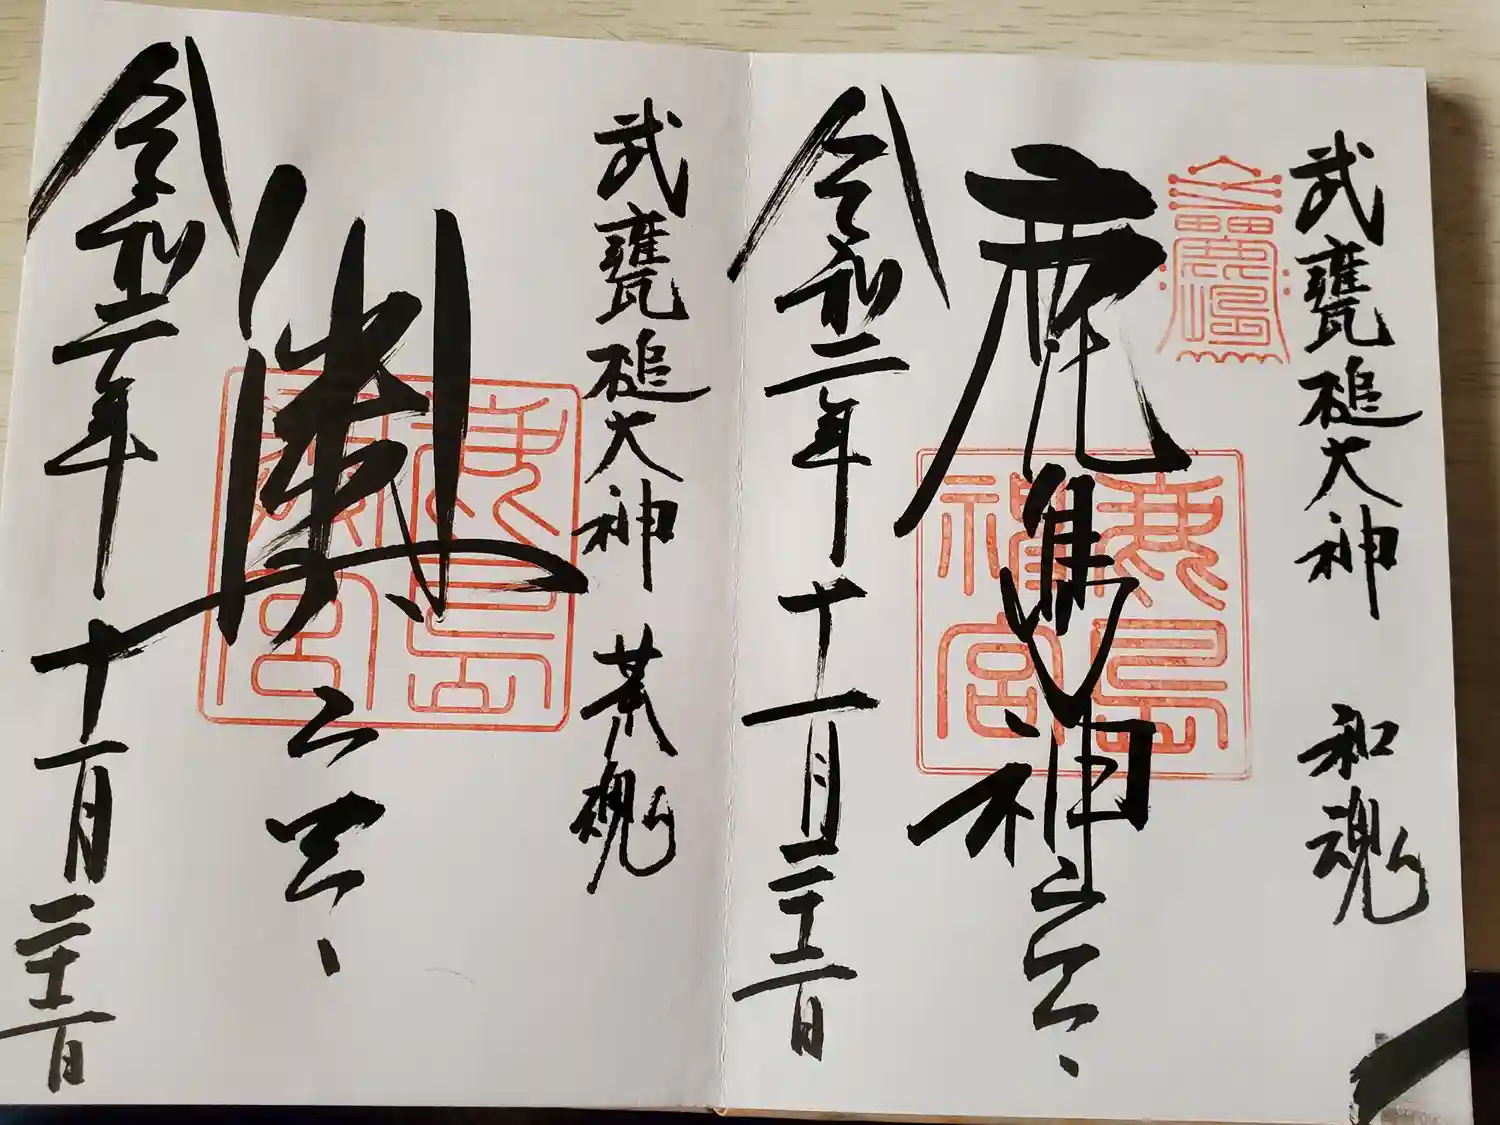 武甕槌大神 和魂
鹿嶋
鹿島神宮
鹿島神宮
令和二年十一月二十二日
武甕槌大神 荒魂
奥宮
鹿島奥宮
令和二年十一月二十二日